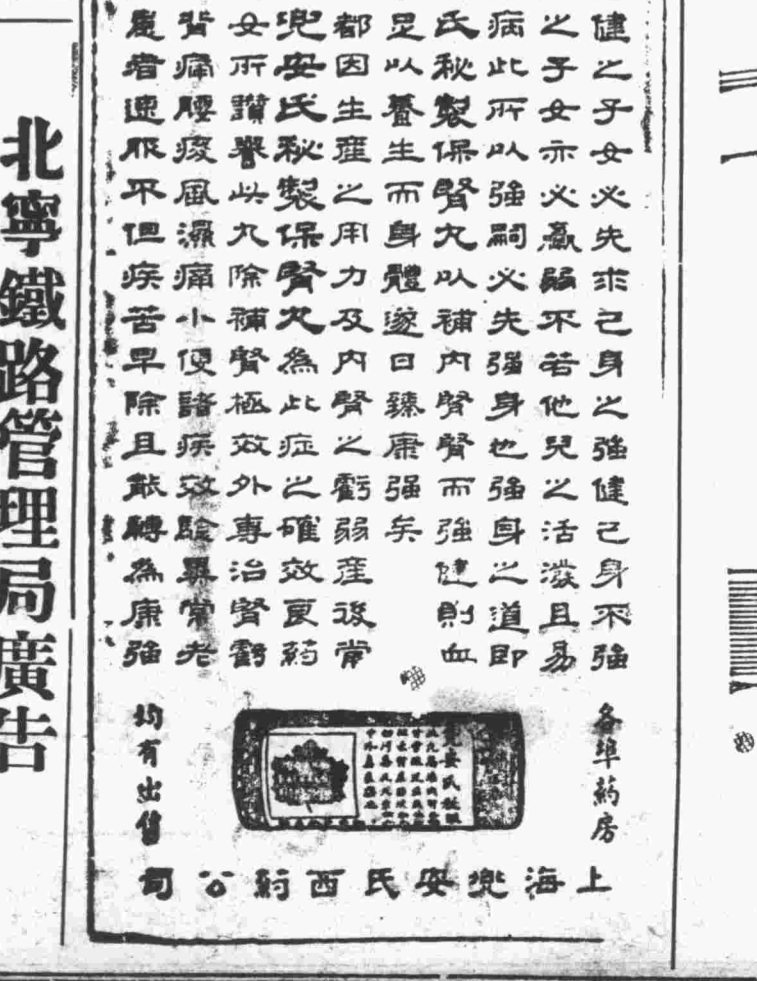 健之子女必先求己身之強健己身不強
之子女亦必羸弱不若他兒之活潑且易
病此所以強嗣必先強身也強身之道即
氏秘製保腎丸以補內腎腎而強健則血
足以養生而身體遂日臻康强矣
都因生產之用力及內腎之虧弱產後常
兜安氏秘製保腎丸為此症之確效良葯
女所讚譽此丸除補腎極效外專治腎虧
背痛腰痠風濕痛小便諸疾效驗異常老
患者速服不但疾苦早除且能轉為康強
各埠葯房
均有出售
上海兜安氏西葯公司
北寧鐵路管理局廣告